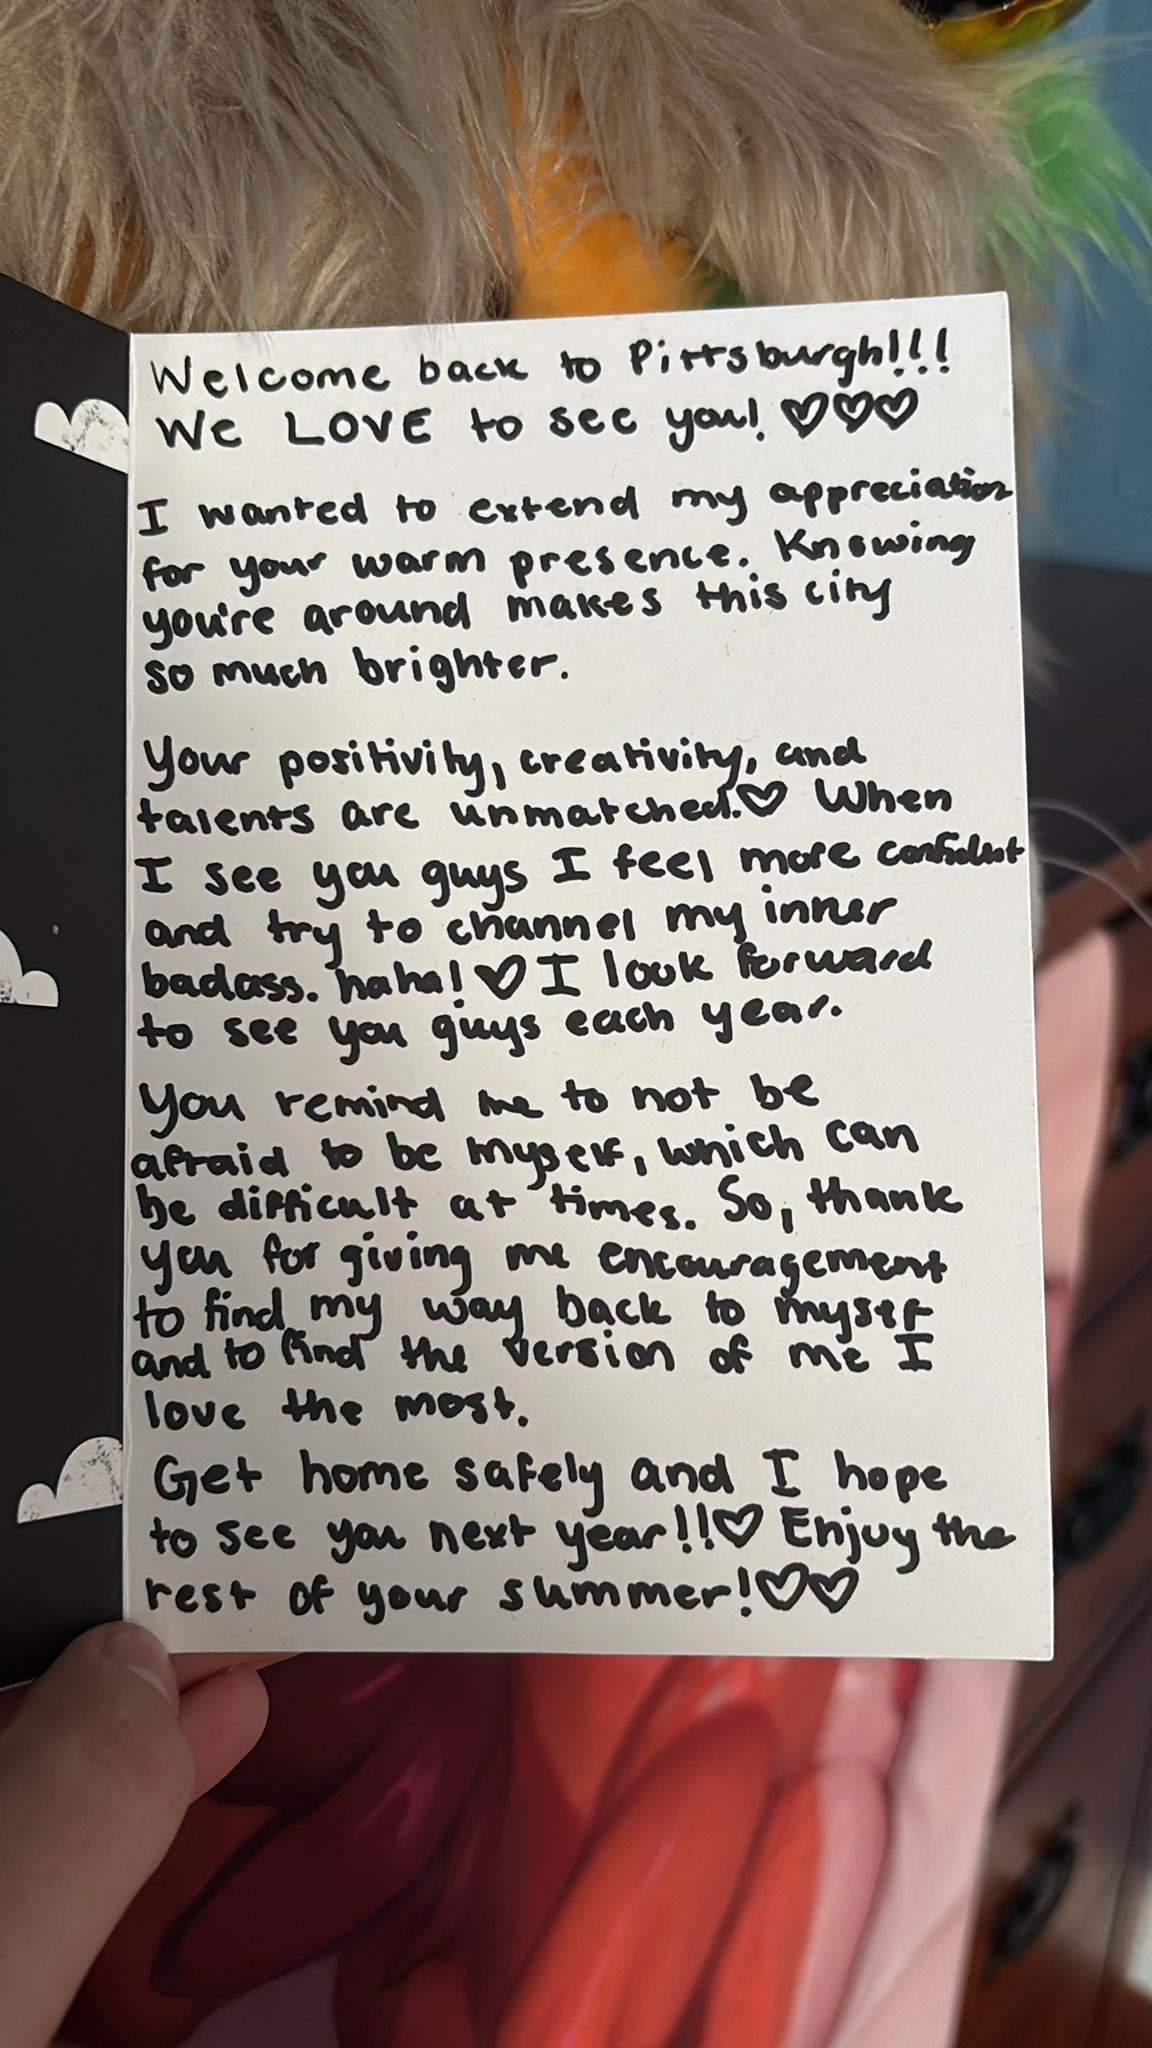 Welcome back to Pittsburgh!!!
We LOVE to see you! ♡♡♡
I wanted to extend my appreciation
for your warm presence. Knowing
you're around makes this city
so much brighter.
Your positivity, creativity, and
talents are unmatched.♡ When
I see you guys I feel more confident
and try to channel my inner
badass. haha! ♡ I look forward
to see you guys each year.
You remind me to not be
afraid to be myself, which can
be difficult at times. So, thank
you for giving me encouragement
to find my way back to myself
and to find the version of me I
love the most.
Get home safely and I hope
to see you next year!!♡ Enjoy the
rest of your summer!♡♡